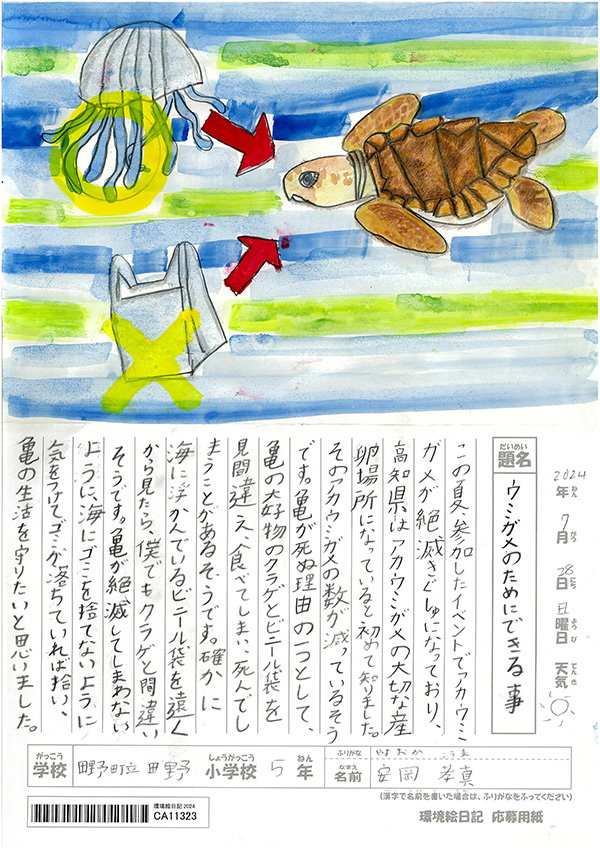 2024年ねん 7月がつ 28日にち 日曜日ようび 天気てんき
だいめい
題名
ウミガメのためにできる事
この夏、参加したイベントでアカウミ
ガメが絶滅きぐしゅになっており、
高知県はアカウミガメの大切な産
卵場所になっていると初めて知りました。
そのアカウミガメの数が減っているそう
です。亀が死ぬ理由の一つとして、
亀の大好物のクラゲとビニール袋を
見間違え、食べてしまい、死んでし
まうことがあるそうです。確かに
海に浮かんでいるビニール袋を遠く
から見たら、僕でもクラゲと間違い
そうです。亀が絶滅してしまわない
ように、海にゴミを捨てないように
気をつけて、ゴミが落ちていれば拾い、
亀の生活を守りたいと思いました。
がっこう しょうがっこう ねん
学校 田野町立田野 小学校 5 年
ふりがな やすおか こうま
なまえ
名前 安岡 孝真
(漢字で名前を書いた場合は、ふりがなをふってください)
環境絵日記 2024
CA11323
環境絵日記 応募用紙